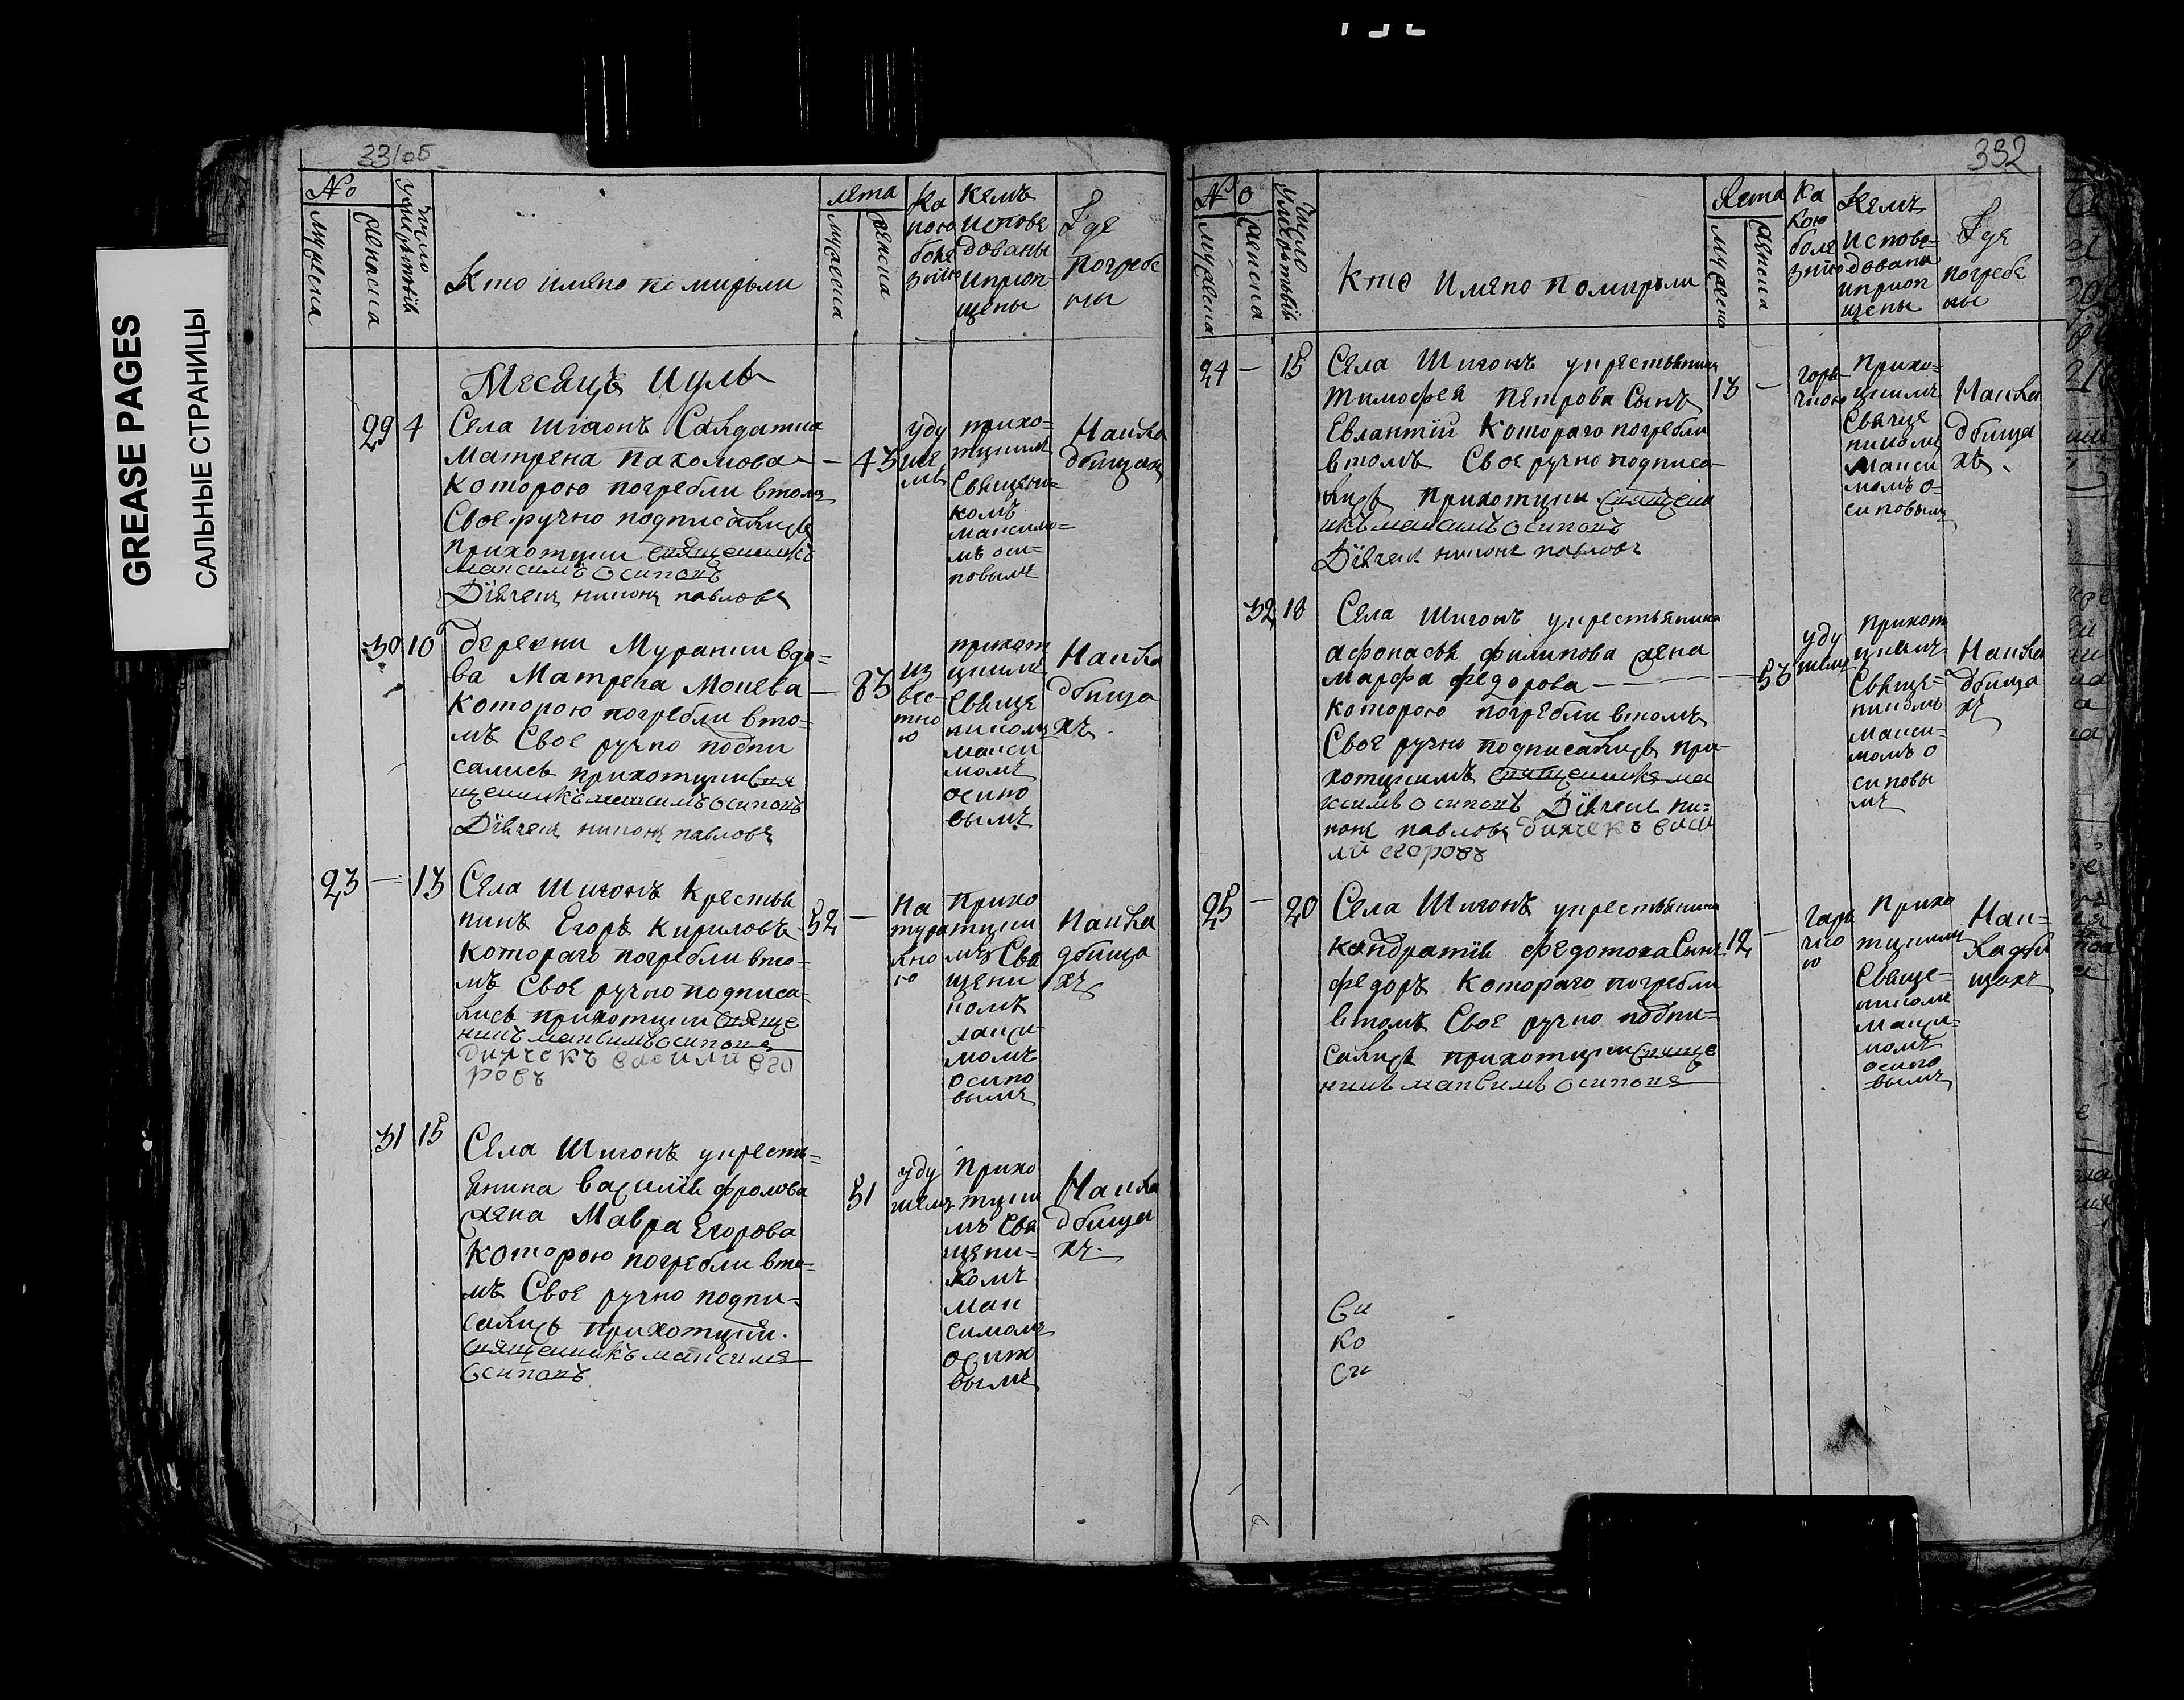 GREASE PAGES
САЛЬНЫЕ СТРАНИЦЫ
331об
No
мужеска
женска
число умертвій
Кто имяно помирыли
лета
мужеска
женска
Ка
кою
боле
знію
кемъ
испове
дованы
иприоп
щены
Где
погребе
ны
Месяцъ Иуль
29 4
Села Шигонъ Салдатка
Матрена Пахомова — 43
которою погребли втомъ
Своеручно подписались
прихотции священникъ
максимъ Осиповъ
Дїячекъ никонъ павловъ
уду
шье
мъ
прихо=
тциимъ
Священи=
комъ
максимо=
мъ оси=
повымъ
Накла
дбищахъ
30 10
деревни Муранки вдо=
ва Матрена Мокева — 83
которою погребли вто=
мъ Свое ручно подпи
сались прихотции свя
щенникъ максимъ осиповъ
Дїячекъ никонъ павловъ
из
вес-
тно
ю
прихот
циимъ
Свяще
никомъ
макси
момъ
осипо
вымъ
Накла
дбища
хъ
23 — 13
Села Шигонъ Крестья
нинъ Егоръ Кириловъ 52 —
котораго погребли вто-
мъ Свое ручно подписа-
лись прихотции свяще
никъ максимъ осиповъ
диячекъ васили его
ровъ
На
тура
лно
ю
прихо
тции
мъ Свя
щени
комъ
макси-
момъ
осипо
вымъ
Накла
дбища
хъ
31 15
Села Шигонъ укрестъ=
янина василїя фролова
жена Мавра Егорова 51
которою погребли вто=
мъ Свое ручно подпи-
сались прихотции.
Священникъ максимъ
Осиповъ
уду
шьемъ
прихо
тции
мъ Свя
щени=
комъ
мак
симомъ
осипо
вымъ
Накла
дбища
хъ.
332
No
мужеска
женска
Число умертвїй
Кто Имяно помирыли
Лета
мужеска
женска
Ка
кою
боле
знїю
Кемъ
испове=
дованы
иприоп
щены
Где
погребе
ны
24 — 15
Села Шигонъ укрестьянина
тимофея петрова Сынъ 13 —
Евлантїй Котораго погребли
втомъ Свое ручно подписа-
лись прихотции священ
икъ максимъ осиповъ
Дїячекъ никонъ павловъ
горя
чкою
прихо=
тциимъ
Свяще
никомъ
макси
момъ о=
сиповымъ
Накла
дбища
хъ.
32 18
Села Шигонъ укрестьянина
афонасья филипова жена
марфа федорова — 53
которою погребли втомъ
Свое ручно подписались при-
хотциимъ священникъ ма
ксимъ осиповъ Дїячекъ ни=
конъ павловъ диячекъ васи
ли егоровъ
уду
шьемъ
прихот
циимъ
Свяще=
никомъ
макси-
момъ о
сиповы
мъ
Накла
дбища
хъ
25 — 20
Села Шигонъ укрестьянина
кандратїя федотова Сынъ 12 —
федоръ Котораго погребли
втомъ Свое ручно подпи=
сались прихотции свяще
никъ максимъ осиповъ
горя
чко
ю
прихо
тциимъ
Свяще-
никомъ
макси-
момъ
осипо
вымъ
Нак=
ладби
щахъ
Си
ко
си